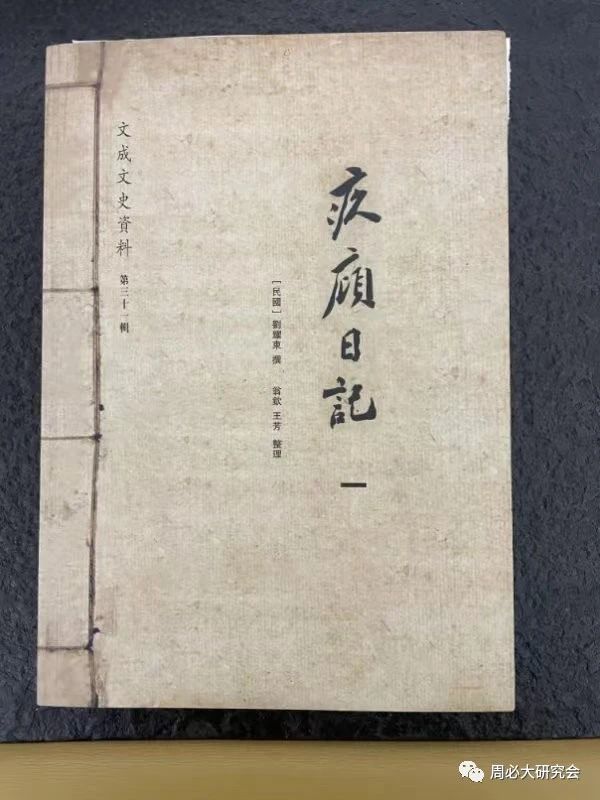 疚廎日記
一
［民國］劉耀東 撰 翁欽 王芳 整理
文成文史資料 第三十一輯
周必大研究会